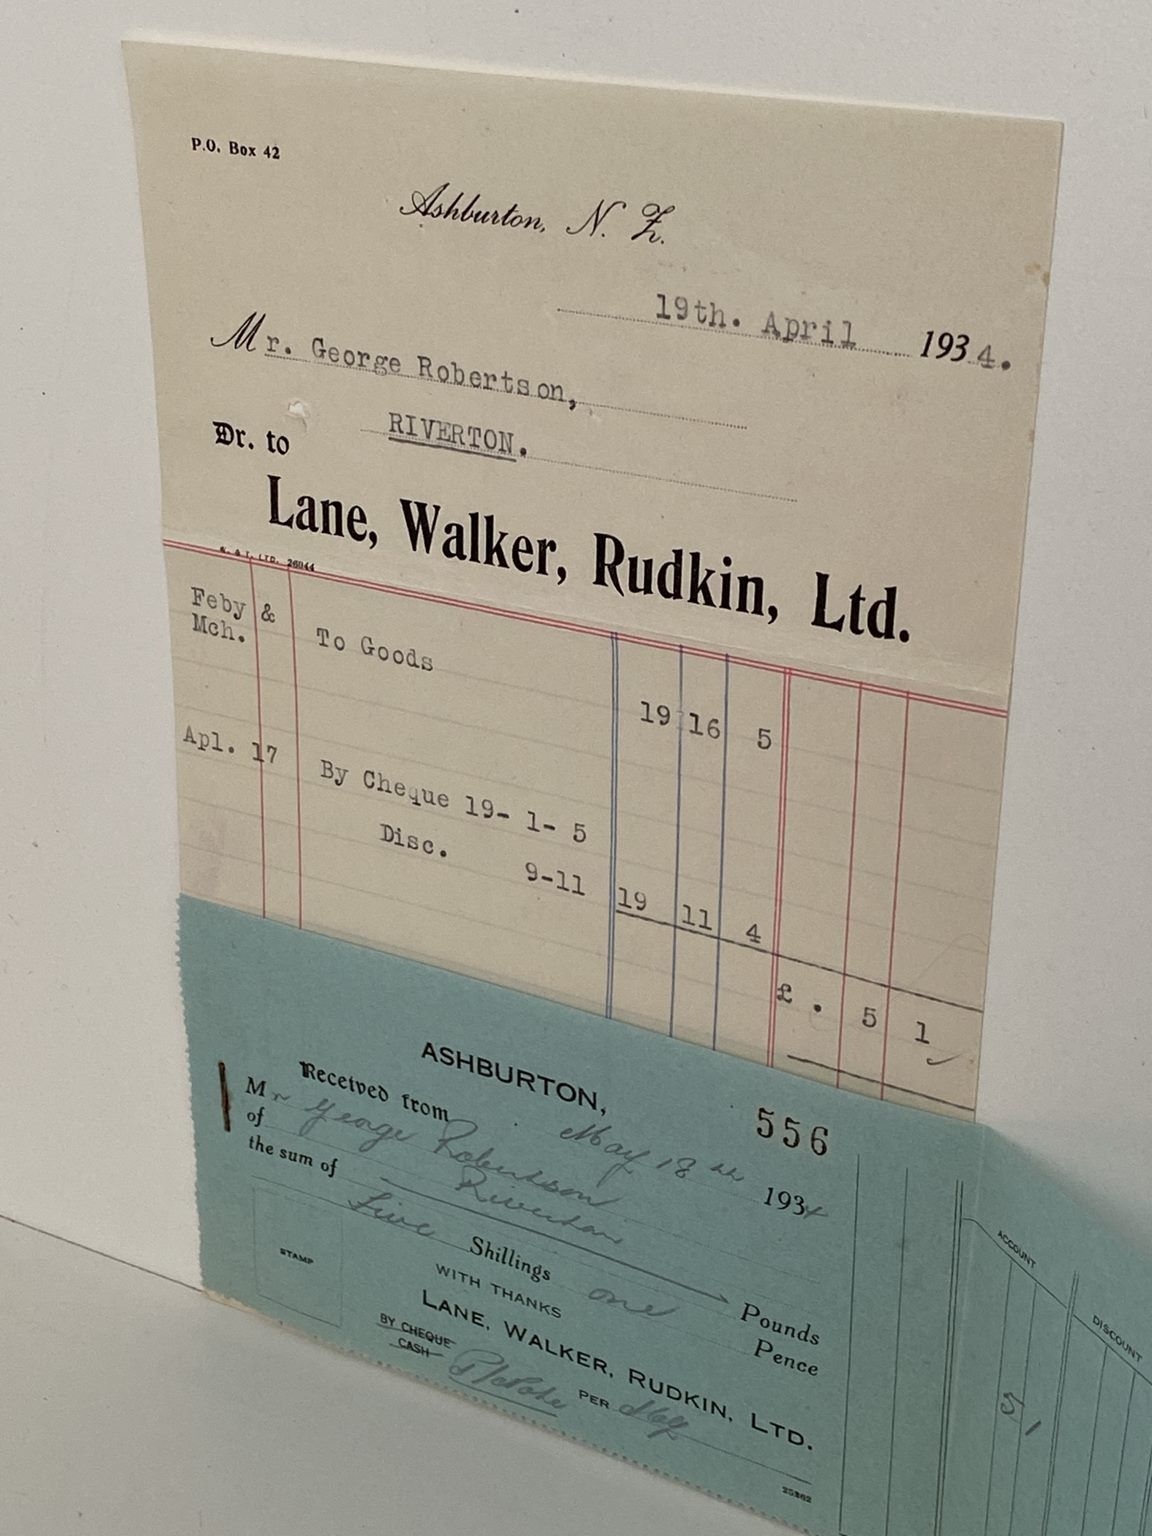 P.O. Box 42
Ashburton, N. Z.
19th. April 1934.
Mr. George Robertson,
RIVERTON.
Dr. to
Lane, Walker, Rudkin, Ltd.
LTD. 26044
Feby &
Mch. To Goods 19 16 5
Apl. 17 By Cheque 19- 1- 5
Disc. 9-11 19 11 4
£ . 5 1
ASHBURTON,
556
May 18th 1934
Received from
Mr George Robertson
of Riverton
the sum of Pounds
Five Shillings one Pence
STAMP
WITH THANKS
LANE, WALKER, RUDKIN, LTD.
BY CHEQUE
CASH
PER
25862
ACCOUNT
DISCOUNT
5 1